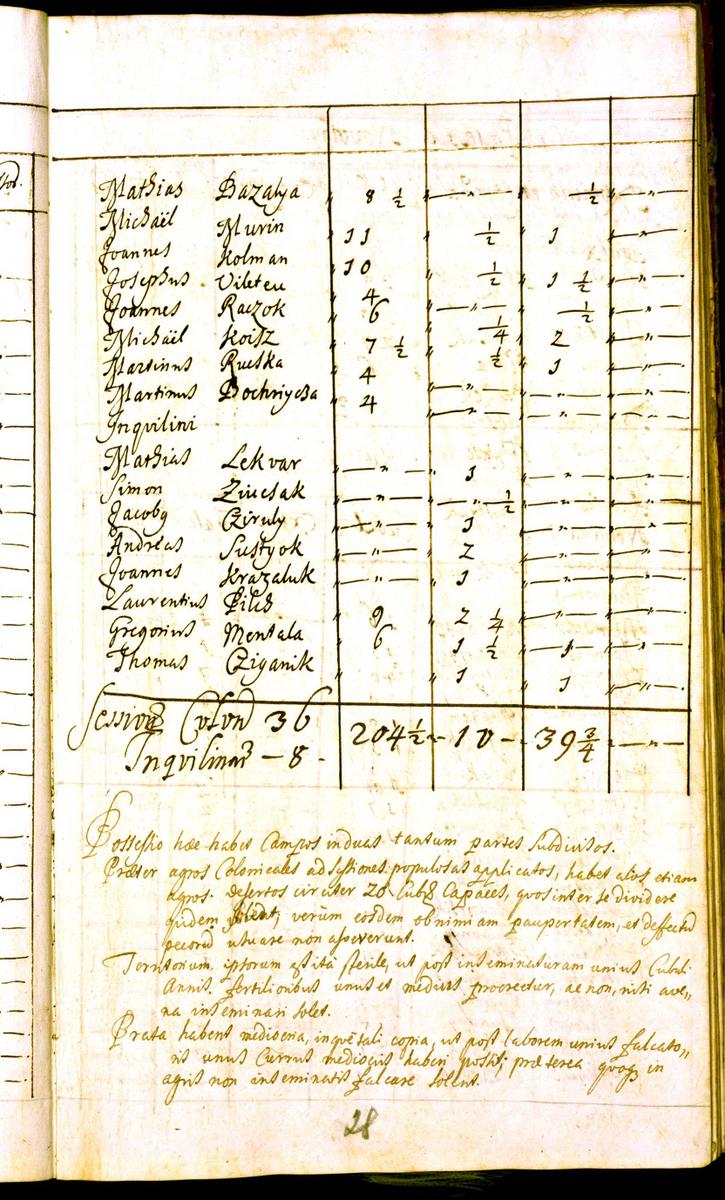 Mathias Bazalya " 8 ½ " — " — " ½ " — " —
Michaël Murin 11 " ½ " 1 " — " —
Joannes Kolman 10 " ½ " 1 ½ " — " —
Josephus Viletcu 4 " — " — " ½ " — " —
Joannes Raczok 6 " ¼ " 2 " — " —
Michaël Koisz 7 ½ " ½ " 1 " — " —
Martinus Rucska 4 " — " — " — " — " — " —
Martinus Bochniycsa 4 " — " — " — " — " — " —
Inquilini
Mathias Lekvar " — " — " 1 " — " — " — " —
Simon Ziucsak " — " — " — " ½ " — " — " — " —
Jacobg Cziruly " — " — " 1 " — " — " — " —
Andreas Sustyok " — " — " 2 " — " — " — " —
Joannes Krazaluk " — " — " 1 " — " — " — " —
Laurentius Pilch 9 " 2 ¼ " — " — " — " —
Gregorius Mentala 6 " 1 ½ " — " — " — " —
Thomas Cziganik " " 1 " 1 " — " —
Session Colon 36 204 ½ - 10 - 39 ¾ — " —
Inquilinar — 8 -
Possessio hæc habet Campos in duas tantum partes subdivisos.
Præter agros Colonicales ad sessiones populosas applicatos, habet alios etiam
agros desertos circiter 20 Cub Capaces, quos inter se dividere
quidem solent, verùm eosdem ob nimiam paupertatem, et deffectu
pecorū usuare non assverunt.
Territorium ipsorum est ità sterile, ut post inseminaturam unius Cubuli
Annis fertilioribus unus et medius procreetur, ac non, nisi ave„
na inseminari solet.
Prata habent mediocria, inqve tali copia, ut post laborem unius falcato„
ris unus Currus mediocris haberi possit; præterea qvoq in
agris non inseminatis falcare solent.
28